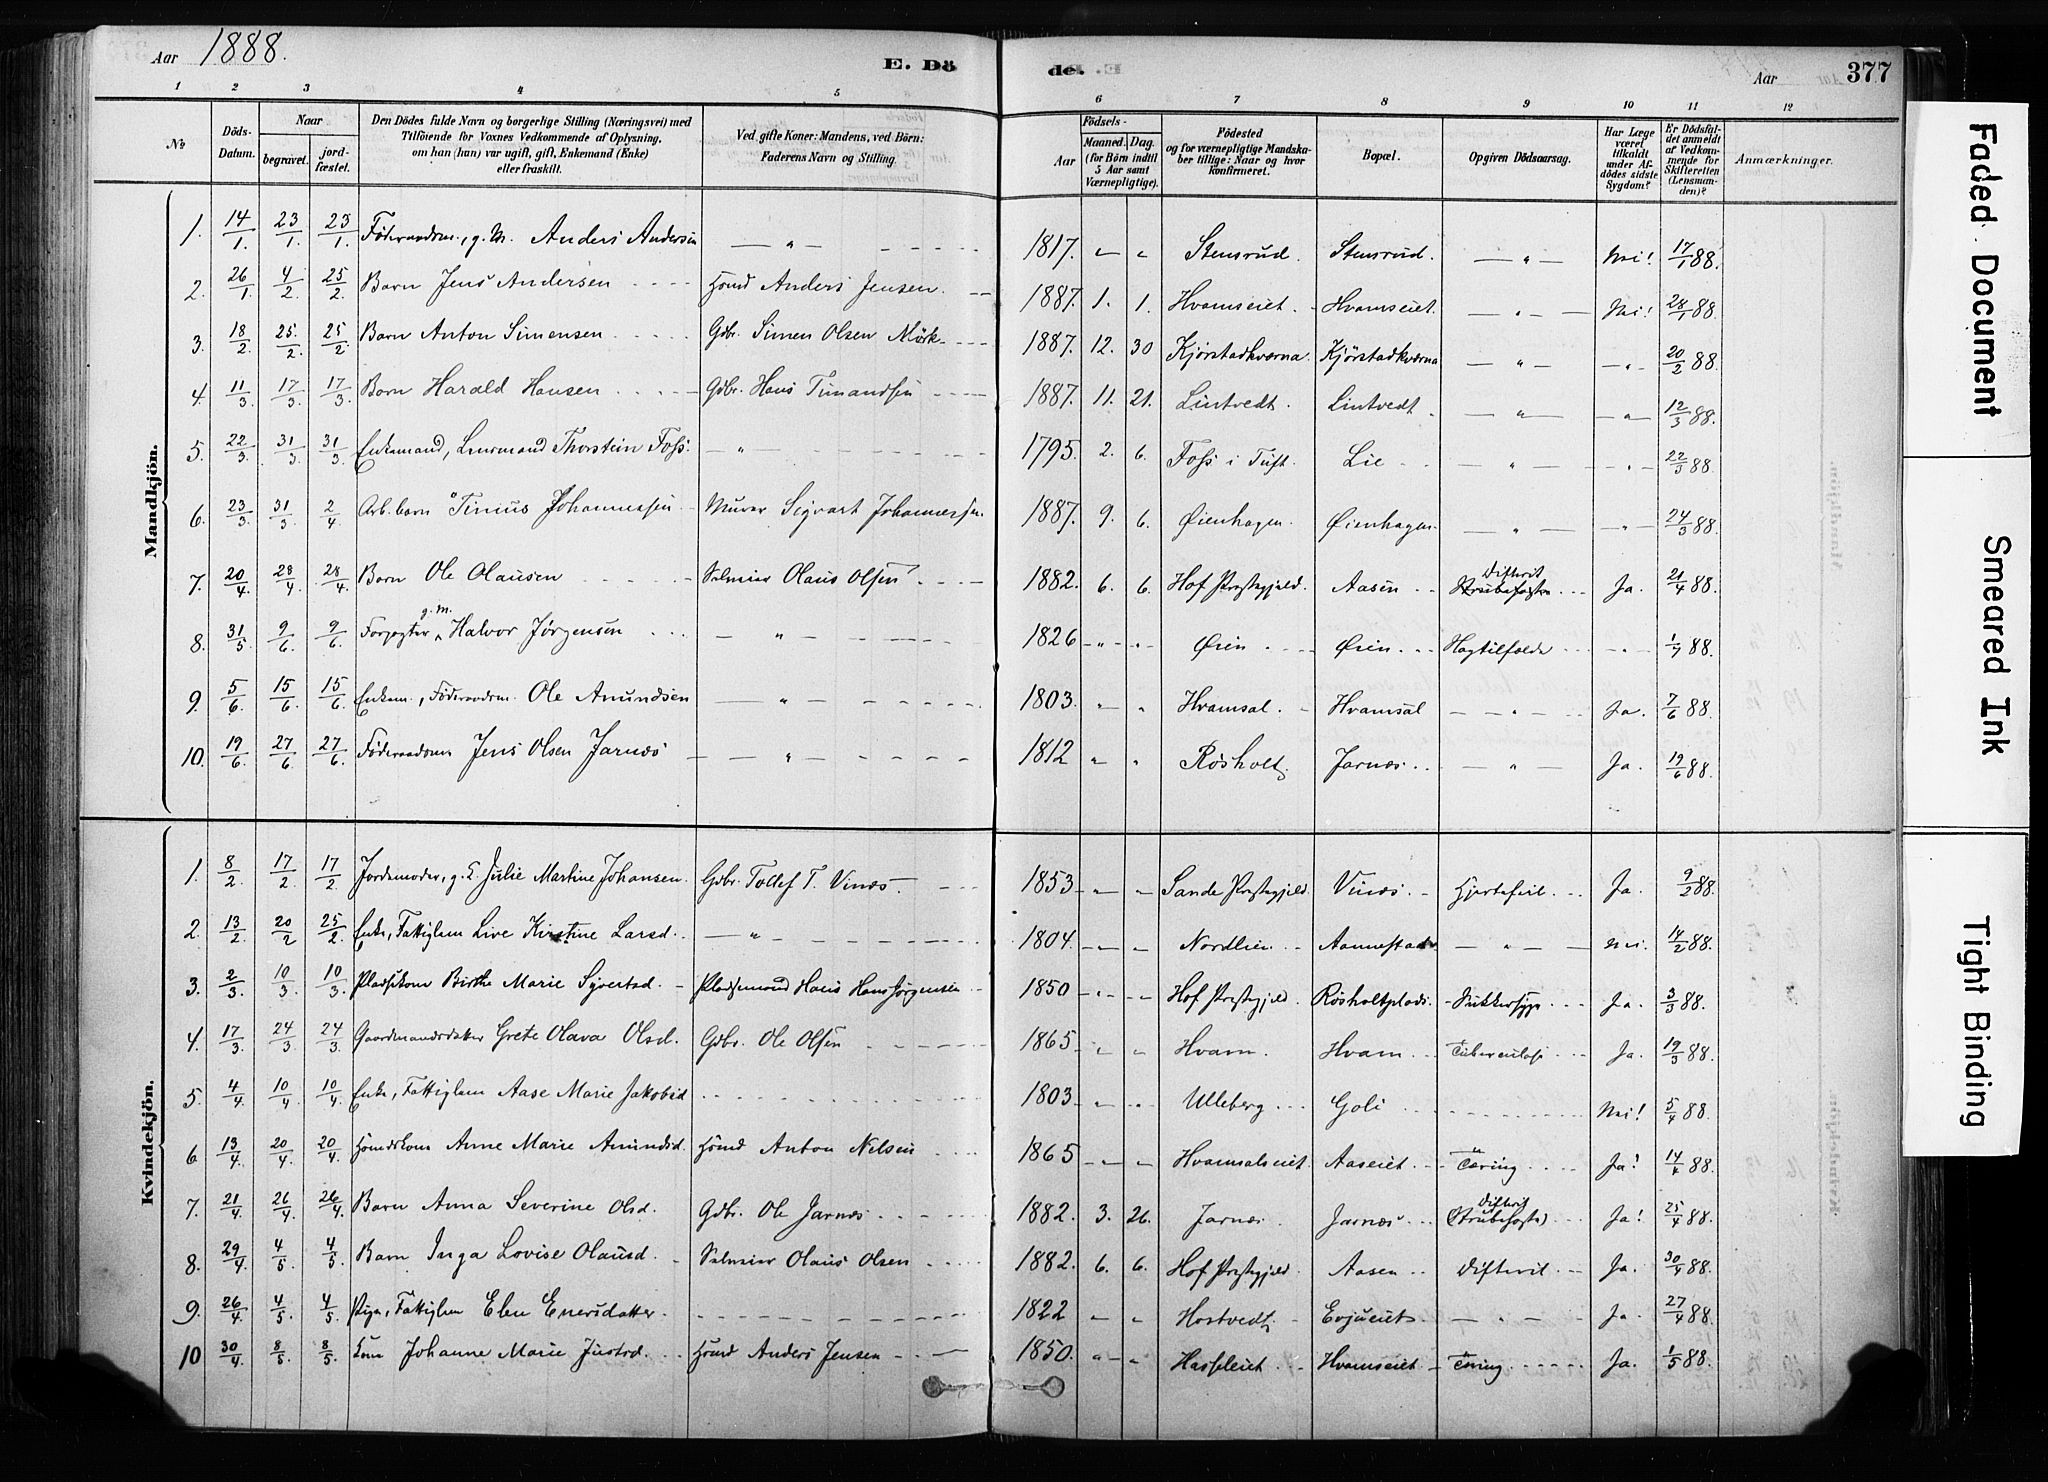 Aar 1888. E. Döde. Aar 377
1 2 3 4 5 6 7 8 9 10 11 12
№ Döds-Datum. Naar begravet. jordfæstet. Den Dödes fulde Navn og borgerlige Stilling (Næringsvei) med Tilföiende for Voxnes Vedkommende af Oplysning, om han (hun) var ugift, gift, Enkemand (Enke) eller fraskilt. Ved gifte Koner: Mandens, ved Börn: Faderens Navn og Stilling. Födsels- Aar Maaned. Dag. (for Börn indtil 5 Aar samt Værnepligtige). Födested og for værnepligtige Mandskaber tillige: Naar og hvor konfirmeret. Bopæl. Opgiven Dödsaarsag. Har Læge været tilkaldt under Afdödes sidste Sygdom? Er Dödsfaldet anmeldt af Vedkommende for Skifteretten (Lensmanden)? Anmærkninger.
Mandkjön.
1. 14/1 23/1 23/1 Föderaadsm., g. M. Anders Andersen — " — 1817. " " Stensrud. Stensrud. — " — Nei! 17/1 88.
2. 26/1 4/2 25/2 Barn Jens Andersen Hsmd Anders Jensen. 1887. 1. 1. Hvamseiet. Hvamseiet. — " — Nei! 28/1 88.
3. 18/2 25/2 25/2 Barn Anton Simensen Gdbr. Simen Olsen Mörk 1887. 12. 30 Kjörstadkværna. Kjörstadkværna — " — — " — 20/2 88.
4. 11/3 17/3 17/3 Barn Harald Hansen Gdbr. Hans Timandsen 1887. 11. 21. Lintvedt. Lintvedt. — " — — " — 12/3 88.
5. 22/3 31/3 31/3 Enkemand, Lensmand Thorstein Foss. — " — 1795. 2. 6. Foss i Tuft. Lie — " — " 22/3 88.
6. 23/3 31/3 2/4 Arb. barn Tinius Johannessen Murer Sigvart Johannessen. 1887. 9. 6. Øienhagen. Øienhagen. — " — — " — 24/3 88.
7. 20/4 28/4 28/4 Barn Ole Olausen Selveier Olaus Olsen 1882. 6. 6. Hof Præstegjeld. Aasen Difterit Strubehoste Ja. 21/4 88.
8. 31/5 9/6 9/6 Forpagter g. M. Halvor Jörgensen — " — 1826 " " Øien Øien. — " — 1/7 88.
9. 5/6 15/6 15/6 Enkem., Föderaadsm. Ole Amundsen — " — 1803. " " Hvamsal. Hvamsal — " — Ja. 7/6 88.
10. 19/6 27/6 27/6 Föderaadsm Jens Olsen Jarnæs — " — 1812 " " Rösholt Jarnæs — " — Ja. 19/6 88.
Kvindekjön.
1. 8/2 17/2 17/2 Jordemoder, g. K. Julie Martine Johansen. Gdbr. Tollef T. Vinæs. 1853 " " Sande Præstegjeld Vinæs. Hjertefeil Ja. 9/2 88.
2. 13/2 20/2 25/2 Enke, Fattiglem Live Kirstine Larsd. — " — 1804. " " Nordlien Aannestad — " — Nei. 14/2 88.
3. 2/3 10/3 10/3 Pladsekone Birthe Marie Syvertsd. Pladsemand Hans Hans Jørgensen 1850 " " Hof Præstegjeld. Rösholtplads. Sukkersyge Ja. 3/3 88.
4. 17/3 24/3 24/3 Gaardmandsdatter Grete Olava Olsd. Gdbr. Ole Olsen 1865 " " Hvam. Hvam Tuberculose Ja. 19/3 88.
5. 4/4 10/4 10/4 Enke, Fattiglem Aase Marie Jakobsd 1803 " " Ulleberg Goli Nei! 5/4 88.
6 13/4 20/4 20/4 Hsmdskone Anne Marie Amundsd. Hsmd Anton Nilsen 1865 " " Hvamsalseiet. Aaseiet. Tæring Ja! 14/4 88.
7. 21/4 26/4 26/4 Barn Anna Severine Olsd. Gdbr. Ole Jarnæs. 1882. 3. 26. Jarnæs Jarnæs Difterit (Strubehoste) Ja! 25/4 88.
8. 29/4 4/5 4/5 Barn Inga Lovise Olausd. Selveier Olaus Olsen 1882. 6. 6. Hof Præstegjeld. Aasen Difterit Ja. 30/4 88.
9. 26/4 4/5 4/5. Pige, Fattiglem Elen Enersdatter. 1822 " " Hostvedt. Evjueiet — " — Ja. 27/4 88.
10 30/4 8/5. 8/5 Kone Johanne Marie Justsd. Hsmd Anders Jensen 1850. " " Hassleiet Hvamseiet Tæring Ja. 1/5 88.
Faded Document
Smeared Ink
Tight Binding